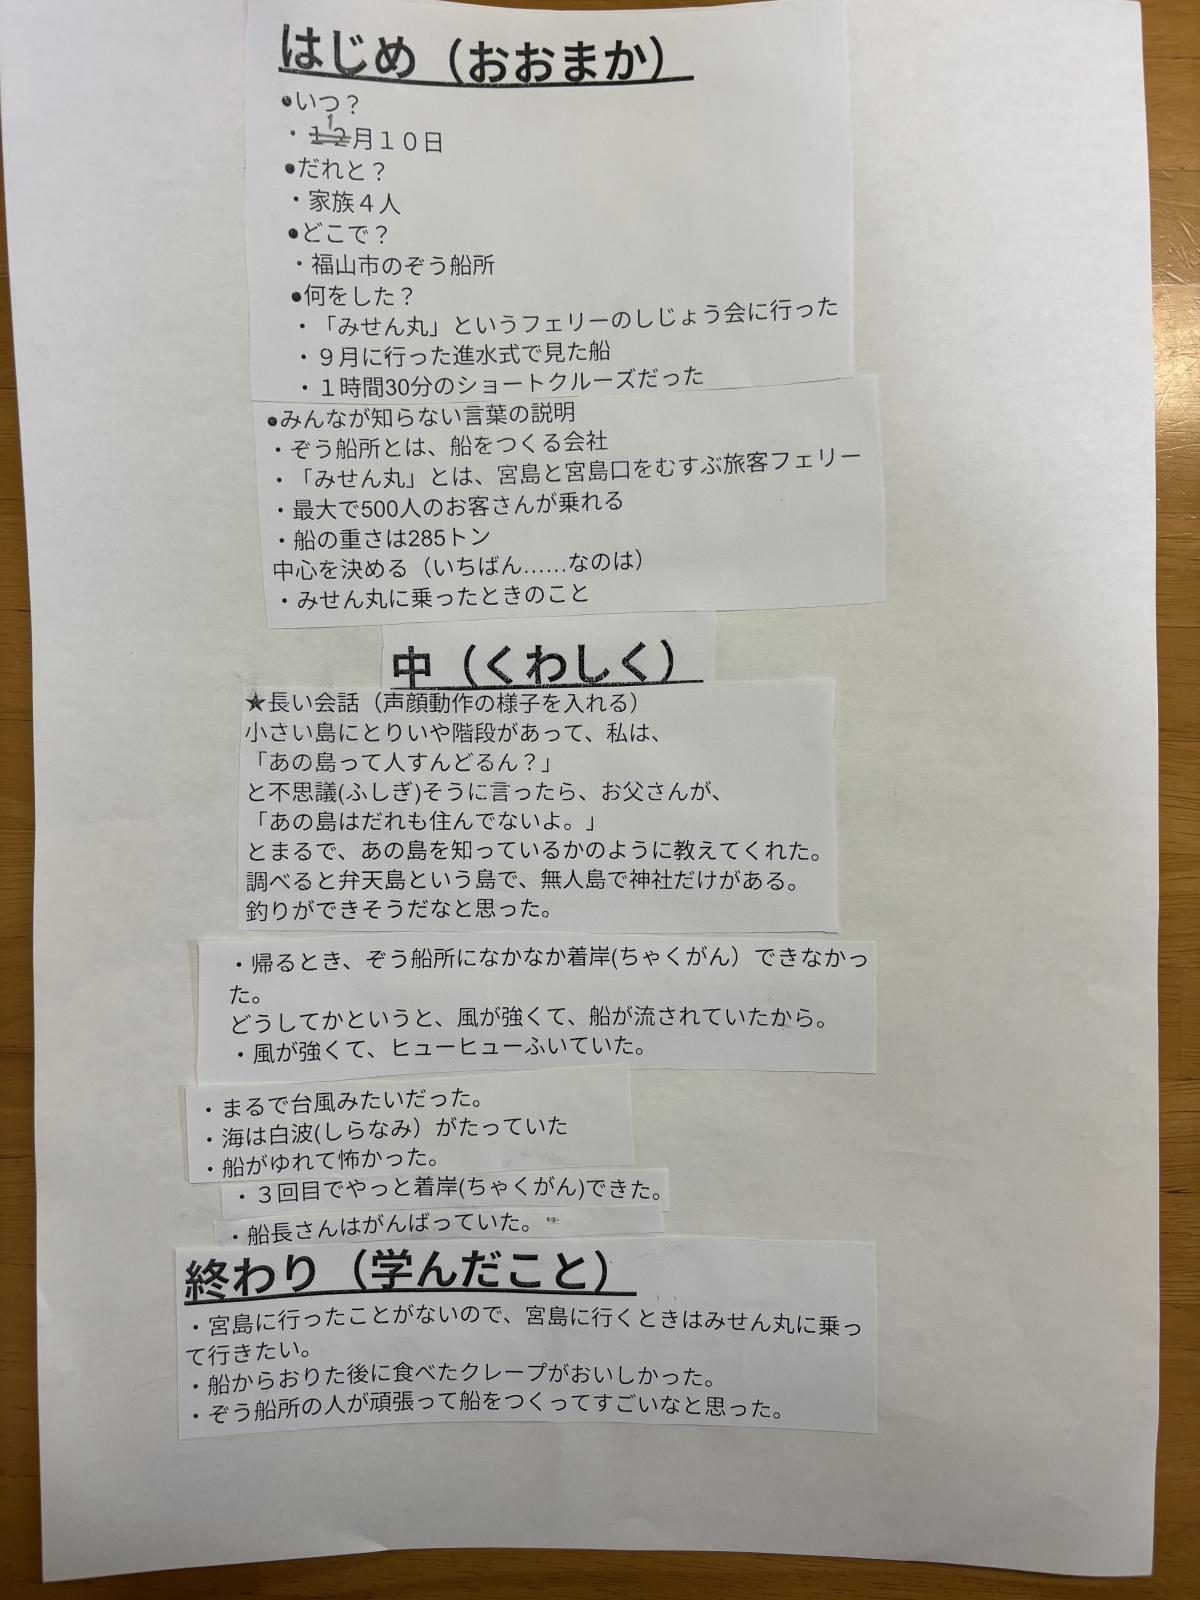 はじめ（おおまか）
●いつ？
・1
12月１０日
●だれと？
・家族４人
●どこで？
・福山市のぞう船所
●何をした？
・「みせん丸」というフェリーのしじょう会に行った
・９月に行った進水式で見た船
・１時間30分のショートクルーズだった
●みんなが知らない言葉の説明
・ぞう船所とは、船をつくる会社
・「みせん丸」とは、宮島と宮島口をむすぶ旅客フェリー
・最大で500人のお客さんが乗れる
・船の重さは285トン
中心を決める（いちばん……なのは）
・みせん丸に乗ったときのこと
中（くわしく）
★長い会話（声顔動作の様子を入れる）
小さい島にとりいや階段があって、私は、
「あの島って人すんどるん？」
と不思議(ふしぎ)そうに言ったら、お父さんが、
「あの島はだれも住んでないよ。」
とまるで、あの島を知っているかのように教えてくれた。
調べると弁天島という島で、無人島で神社だけがある。
釣りができそうだなと思った。
・帰るとき、ぞう船所になかなか着岸(ちゃくがん）できなかっ
た。
どうしてかというと、風が強くて、船が流されていたから。
・風が強くて、ヒューヒューふいていた。
・まるで台風みたいだった。
・海は白波(しらなみ）がたっていた
・船がゆれて怖かった。
・３回目でやっと着岸(ちゃくがん)できた。
・船長さんはがんばっていた。
終わり（学んだこと）
・宮島に行ったことがないので、宮島に行くときはみせん丸に乗っ
て行きたい。
・船からおりた後に食べたクレープがおいしかった。
・ぞう船所の人が頑張って船をつくってすごいなと思った。